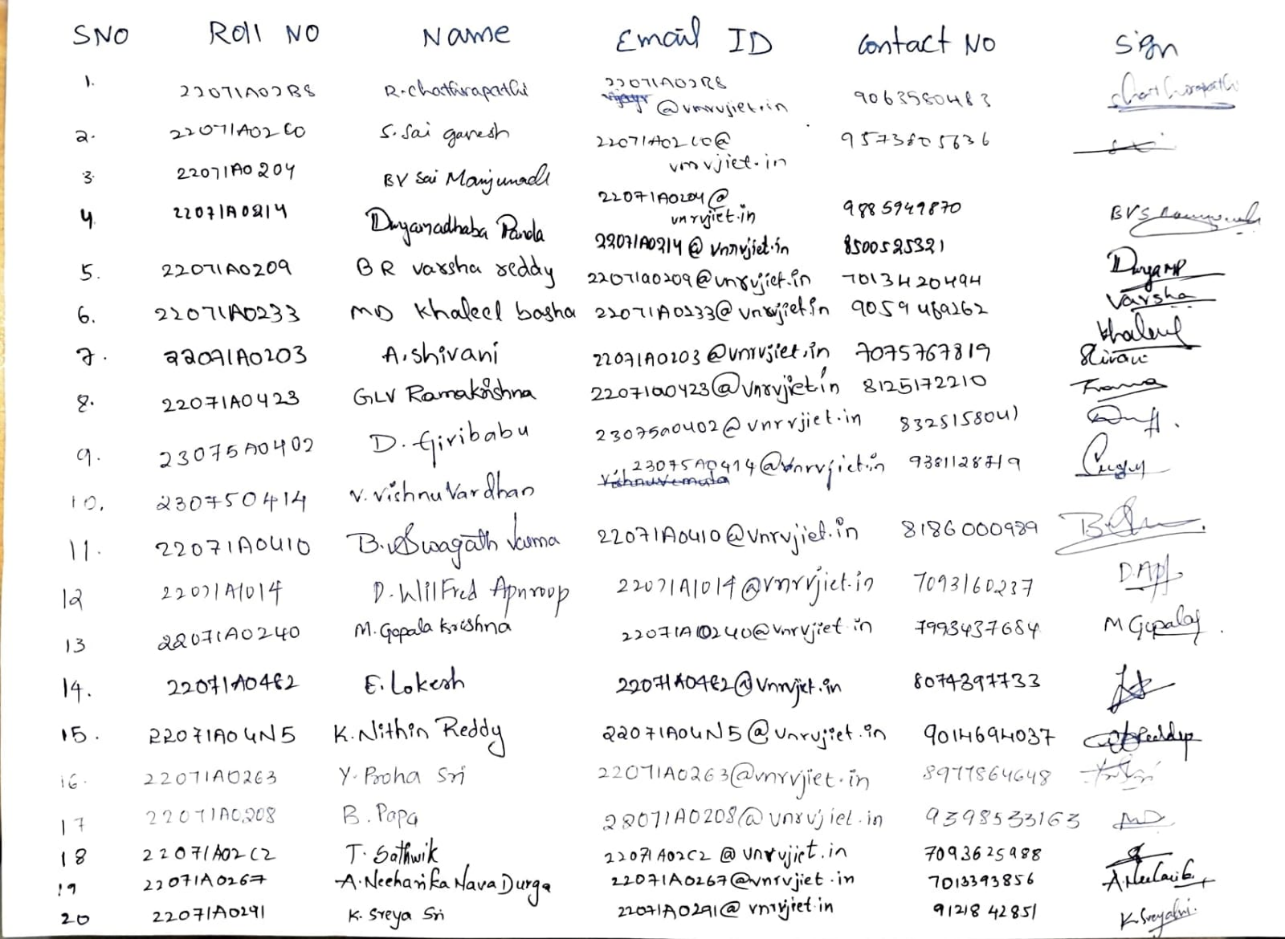 SNO Roll NO Name Email ID Contact No Sign
1. 22071A02B8 R.chathrapathi 22071A02B8 @vnrvjiet.in 9063580483 chathrapathi
2. 22071A02C0 S. Sai ganesh 22071A02C0@ 9573805636
vnrvjiet.in
3. 22071A0204 BV Sai Manjunadh 22071A0204@ 9885949870
vnrvjiet.in
4. 22071A0214 Dvyamadhaba Panda 22071A0214@vnrvjiet.in 8500525321
5. 22071A0209 B R varsha reddy 22071a0209@vnrvjiet.in 7013420494 Varsha
6. 22071A0233 MD Khaleel basha 22071A0233@vnrvjiet.in 9059469262 Khaleel
7. 22071A0203 A.shivani 22071A0203@vnrvjiet.in 7075767819 Shivani
8. 22071A0423 GLV Ramakrishna 22071a0423@vnrvjiet.in 8125172210
9. 23075A0402 D. Giribabu 23075a0402@vnrvjiet.in 8325158041
10. 230750414 V. Vishnu Vardhan 23075A0414@vnrvjiet.in 9381128719
11. 22071A0410 B. Swagath Varma 22071A0410@vnrvjiet.in 8186000989
12 22071A1014 D. WilFred Apuroop 22071A1014@vnrvjiet.in 7093160237
13 22071A0240 M.Gopala Krishna 22071A0240@vnrvjiet.in 7993437684 M Gopala
14. 22071A0482 E. Lokesh 22071A0482@vnrvjiet.in 8074397733
15. 22071A04N5 K.Nithin Reddy 22071A04N5@vnrvjiet.in 9014694037
16. 22071A0263 Y. Proha Sri 22071A0263@vnrvjiet.in 8977864648
17 22071A0208 B. Papa 22071A0208@vnrvjiet.in 9398533163
18 22071A02C2 T. Sathwik 22071A02C2@vnrvjiet.in 7093625988
19 22071A0267 A.Neeharika Nava Durga 22071A0267@vnrvjiet.in 7013393856
20 22071A0291 K. Sreya Sri 22071A0291@vnrvjiet.in 9121842851 K.Sreyasri.